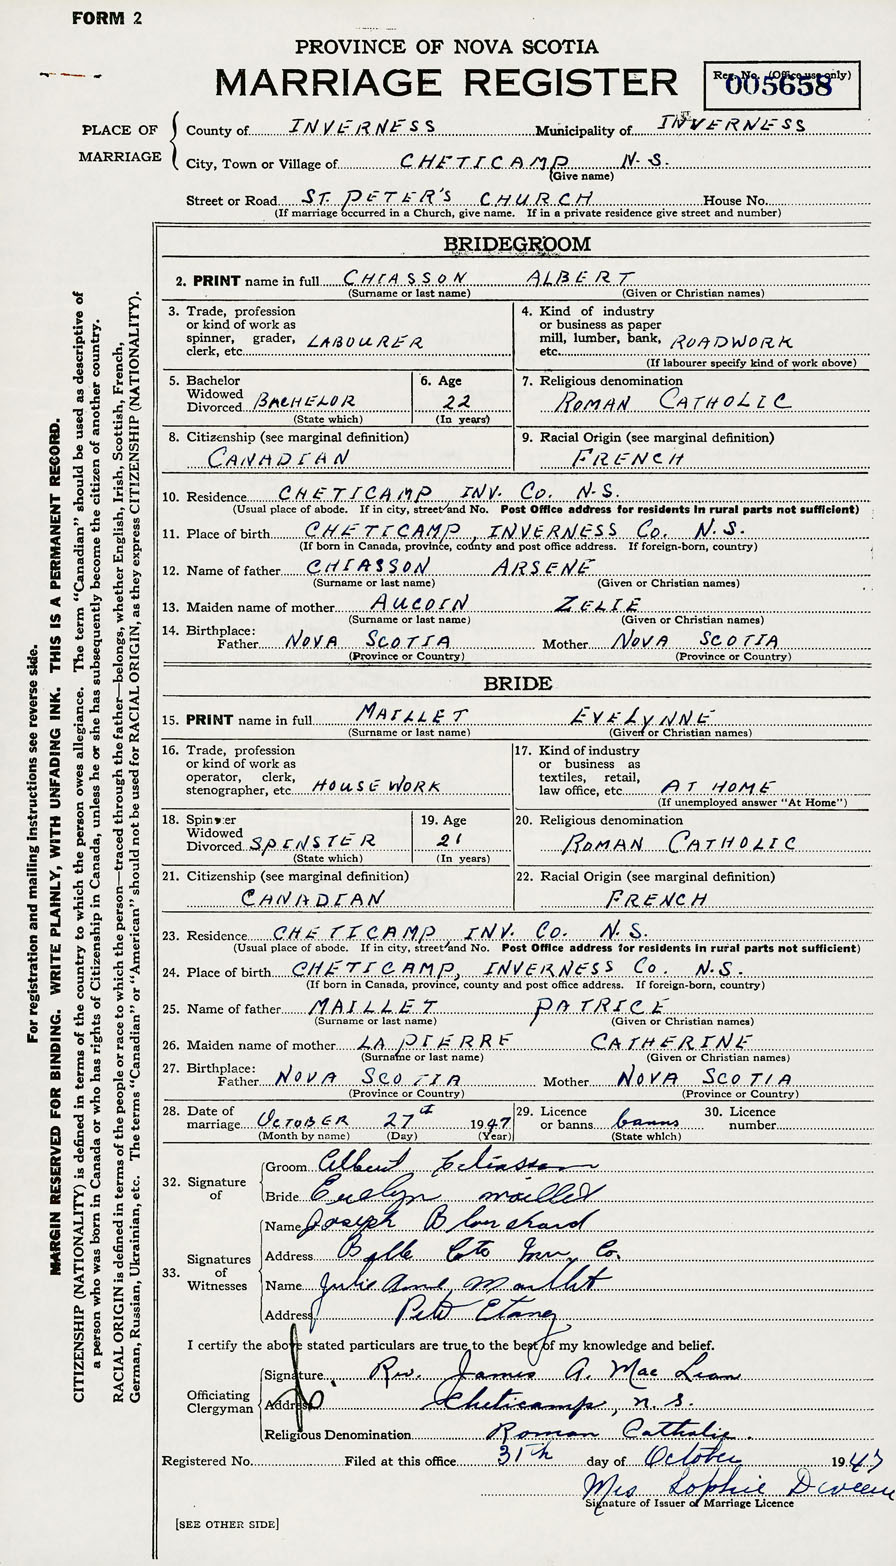 FORM 2
PROVINCE OF NOVA SCOTIA
MARRIAGE REGISTER
Reg. No. (Office use only)
005658
PLACE OF MARRIAGE
County of INVERNESS Municipality of INVERNESS
City, Town or Village of CHETICAMP N.S.
(Give name)
Street or Road ST. PETER'S CHURCH House No.
(If marriage occurred in a Church, give name. If in a private residence give street and number)
BRIDEGROOM
2. PRINT name in full CHIASSON ALBERT
(Surname or last name) (Given or Christian names)
3. Trade, profession
or kind of work as
spinner, grader,
clerk, etc. LABOURER
4. Kind of industry
or business as paper
mill, lumber, bank,
etc. ROADWORK
(If labourer specify kind of work above)
5. Bachelor
Widowed
Divorced BACHELOR
(State which)
6. Age
22
(In years)
7. Religious denomination
ROMAN CATHOLIC
8. Citizenship (see marginal definition)
CANADIAN
9. Racial Origin (see marginal definition)
FRENCH
10. Residence CHETICAMP INV. CO. N.S.
(Usual place of abode. If in city, street and No. Post Office address for residents in rural parts not sufficient)
11. Place of birth CHETICAMP, INVERNESS CO. N.S.
(If born in Canada, province, county and post office address. If foreign-born, country)
12. Name of father CHIASSON ARSENE
(Surname or last name) (Given or Christian names)
13. Maiden name of mother AUCOIN ZELIE
(Surname or last name) (Given or Christian names)
14. Birthplace:
Father NOVA SCOTIA Mother NOVA SCOTIA
(Province or Country) (Province or Country)
BRIDE
15. PRINT name in full MAILLET EVELYNNE
(Surname or last name) (Given or Christian names)
16. Trade, profession
or kind of work as
operator, clerk,
stenographer, etc. HOUSEWORK
17. Kind of industry
or business as
textiles, retail,
law office, etc. AT HOME
(If unemployed answer "At Home")
18. Spinster
Widowed
Divorced SPINSTER
(State which)
19. Age
21
(In years)
20. Religious denomination
ROMAN CATHOLIC
21. Citizenship (see marginal definition)
CANADIAN
22. Racial Origin (see marginal definition)
FRENCH
23. Residence CHETICAMP, INV. CO. N.S.
(Usual place of abode. If in city, street and No. Post Office address for residents in rural parts not sufficient)
24. Place of birth CHETICAMP, INVERNESS CO. N.S.
(If born in Canada, province, county and post office address. If foreign-born, country)
25. Name of father MAILLET PATRICE
(Surname or last name) (Given or Christian names)
26. Maiden name of mother LAPIERRE CATHERINE
(Surname or last name) (Given or Christian names)
27. Birthplace:
Father NOVA SCOTIA Mother NOVA SCOTIA
(Province or Country) (Province or Country)
28. Date of
marriage OCTOBER 27th 1947
(Month by name) (Day) (Year)
29. Licence
or banns banns
(State which)
30. Licence
number
32. Signature of
Groom Albert Chiasson
Bride Evelyn Maillet
33. Signatures of Witnesses
Name Joseph Blanchard
Address Belle Cote Inv. Co.
Name Julie Anne Maillet
Address Petit Etang
I certify the above stated particulars are true to the best of my knowledge and belief.
Officiating Clergyman
Signature Rev. James A. MacLean
Address Cheticamp, N.S.
Religious Denomination Roman Catholic.
Registered No. Filed at this office 31th day of October 1947
Mrs Sophie
Signature of Issuer of Marriage Licence
[SEE OTHER SIDE]
For registration and mailing instructions see reverse side.
MARGIN RESERVED FOR BINDING. WRITE PLAINLY, WITH UNFADING INK. THIS IS A PERMANENT RECORD.
CITIZENSHIP (NATIONALITY) is defined in terms of the country to which the person owes allegiance. The term "Canadian" should be used as descriptive of
a person who was born in Canada or who has rights of Citizenship in Canada, unless he or she has subsequently become the citizen of another country.
RACIAL ORIGIN is defined in terms of the people or race to which the person—traced through the father—belongs, whether English, Irish, Scottish, French,
German, Russian, Ukrainian, etc. The terms "Canadian" or "American" should not be used for RACIAL ORIGIN, as they express CITIZENSHIP (NATIONALITY).